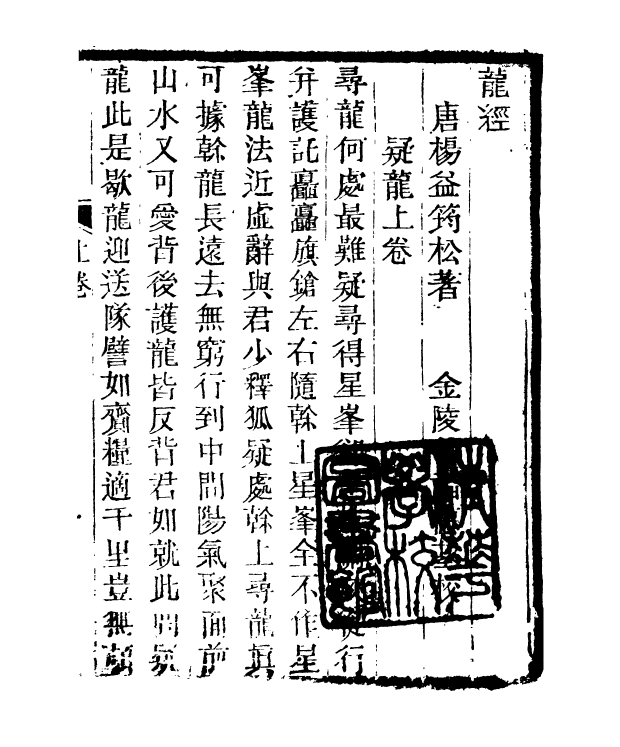 龍經
唐楊益筠松著 金陵 校
疑龍上卷
尋龍何處最難疑尋得星峯 行
并護託矗矗旗鎗左右隨榦上星峯全不作星
峯龍法近虛辭與君少釋狐疑處榦上尋龍真
可據榦龍長遠去無窮行到中間陽氣聚面前
山水又可愛背後護龍皆反背君如就此問疑
龍此是歇龍迎送隊譬如齎糧適千里豈無
上卷